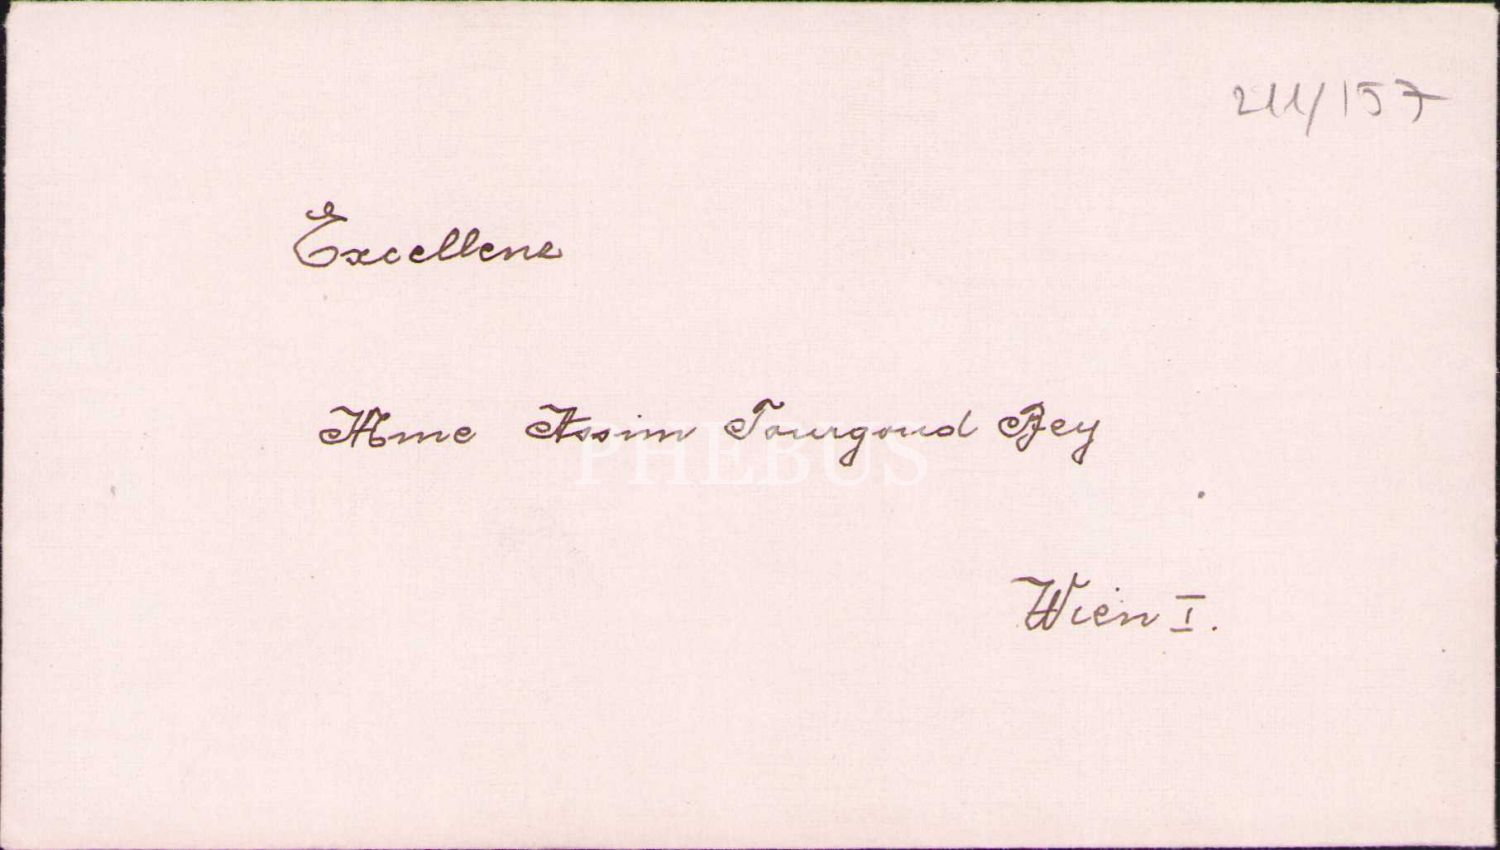 211/157
Excellene
Mme Assim Tourgoud Bey
PHEBUS
Wien I.